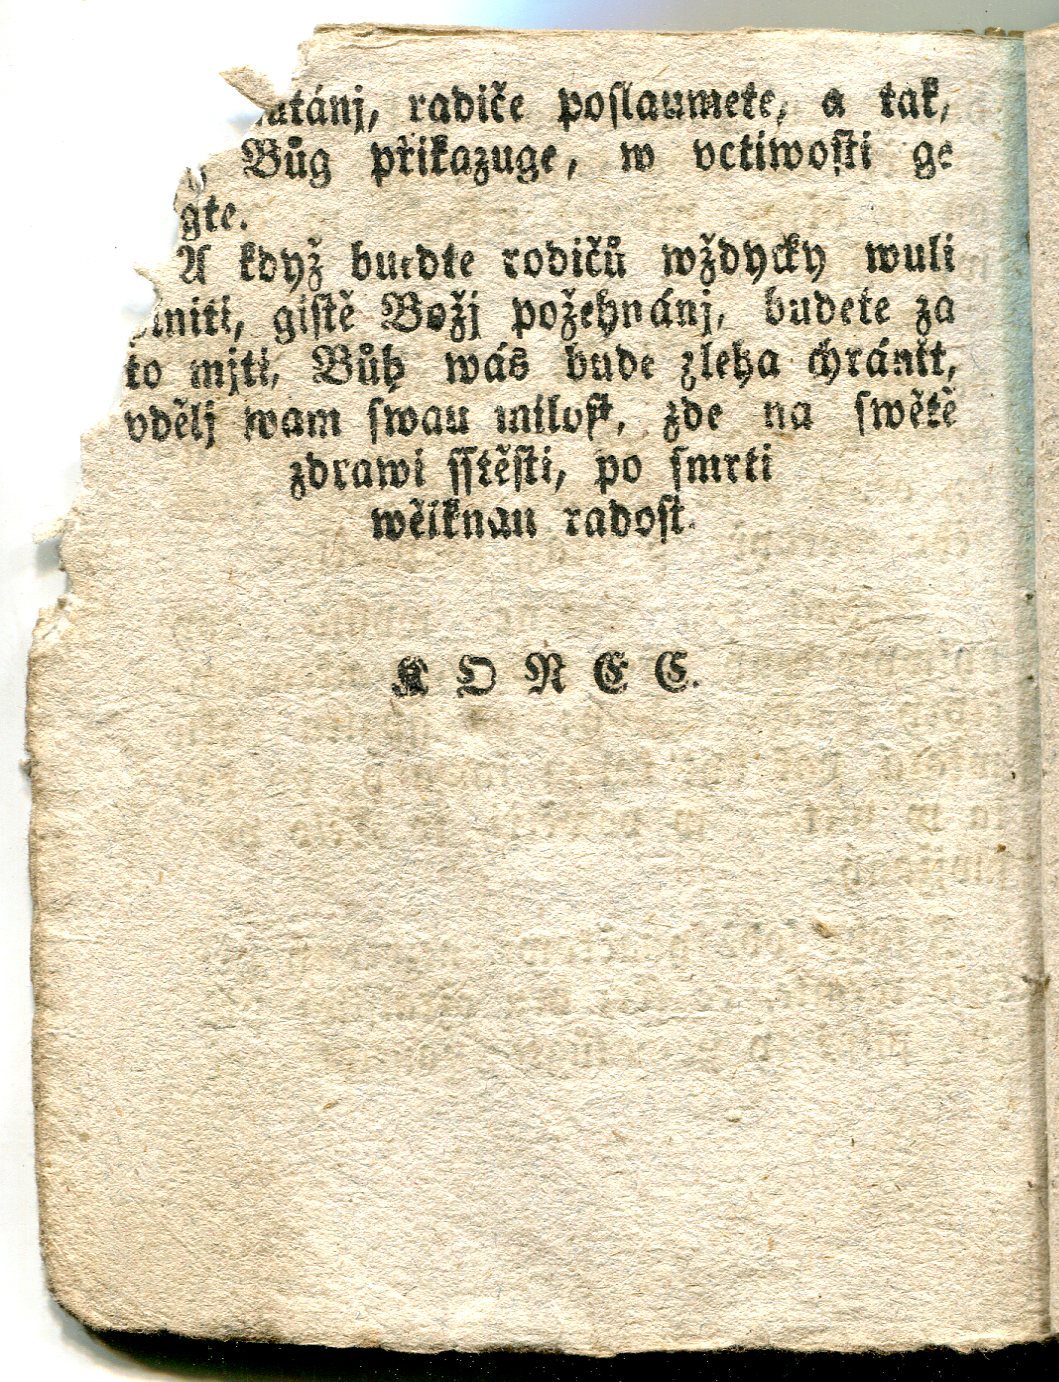 radiče poslaumete, a tak,
Bůg přikazuge, w vctiwosti ge
gte.
A když budte rodičů wždycky wuli
lniti, gistě Božj požehnánj, budete za
to mjti, Bůh wás bude zleha chránit,
vdělj wam swau milost, zde na swětě
zdrawi sstěsti, po smrti
wělknau radost.
KONEC.